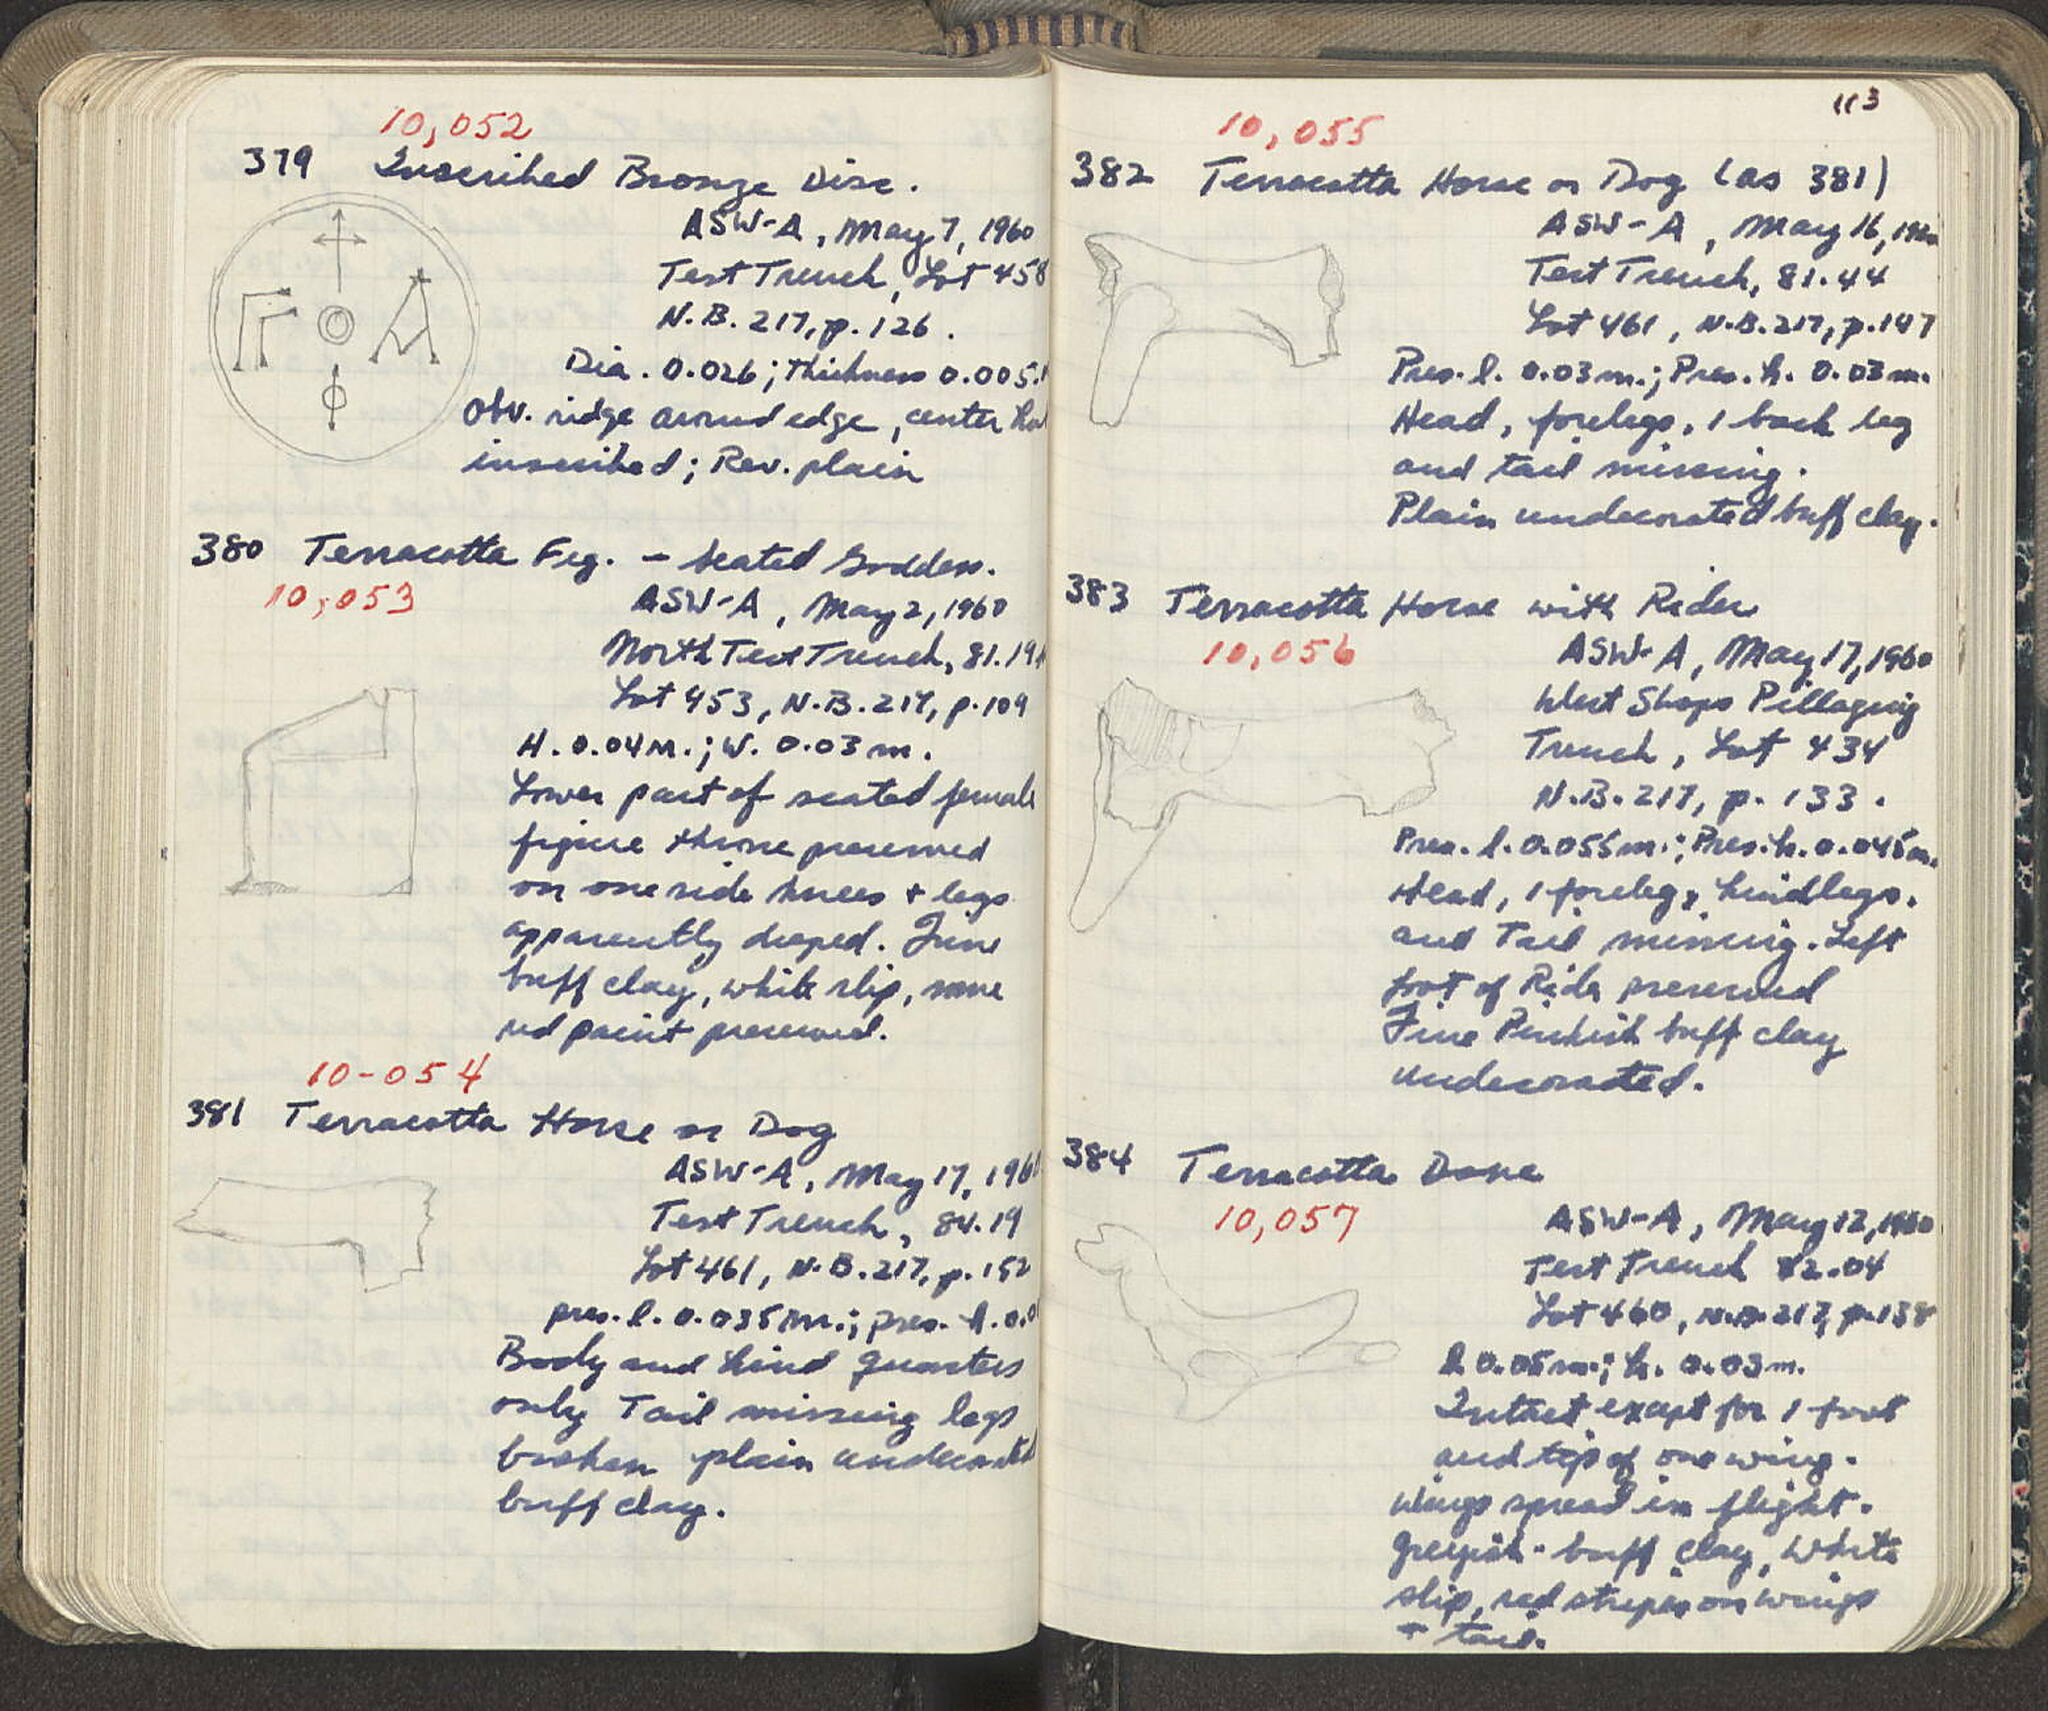 10,052
379 Inscribed Bronze Disc.
ASW-A, May 7, 1960
Test Trench, Lot 458
N.B. 217, p. 126.
Dia. 0.026; thickness 0.005
Obv. ridge around edge, center
inscribed; Rev. plain
Φ
380 Terracotta Fig. - Seated Goddess.
10,053
ASW-A, May 2, 1960
North Test Trench, 81.19
Lot 453, N.B. 217, p. 109
H. 0.04 m.; W. 0.03 m.
Lower part of seated female
figure throne preserved
on one side knees + legs
apparently draped. Fine
buff clay, white slip, some
red paint preserved.
10-054
381 Terracotta Horse or Dog
ASW-A, May 17, 196
Test Trench, 84.19
Lot 461, N.B. 217, p. 152
pres. l. 0.035 m.; pres. h. 0.0
Body and hind quarters
only Tail missing legs
broken plain undecorated
buff clay.
113
10,055
382 Terracotta Horse or Dog (as 381)
ASW-A, May 16, 1960
Test Trench, 81.44
Lot 461, N.B. 217, p. 147
Pres. l. 0.03 m.; Pres. h. 0.03 m.
Head, forelegs, 1 back leg
and tail missing.
Plain undecorated buff clay.
383 Terracotta Horse with Rider
10,056
ASW-A, May 17, 1960
West Shops Pillaging
Trench, Lot 434
N.B. 217, p. 133.
Pres. l. 0.055 m.; Pres. h. 0.045 m.
Head, 1 foreleg, hindlegs,
and Tail missing. Left
foot of Rider preserved
Fine Pinkish buff clay
undecorated.
384 Terracotta Dove
10,057
ASW-A, May 12, 1960
Test Trench 82.04
Lot 460, N.B. 217, p. 138
l. 0.05 m.; h. 0.03 m.
Intact except for 1 foot
and tip of one wing.
Wings spread in flight.
Greyish-buff clay, white
slip, red stripes on wings
+ tail.